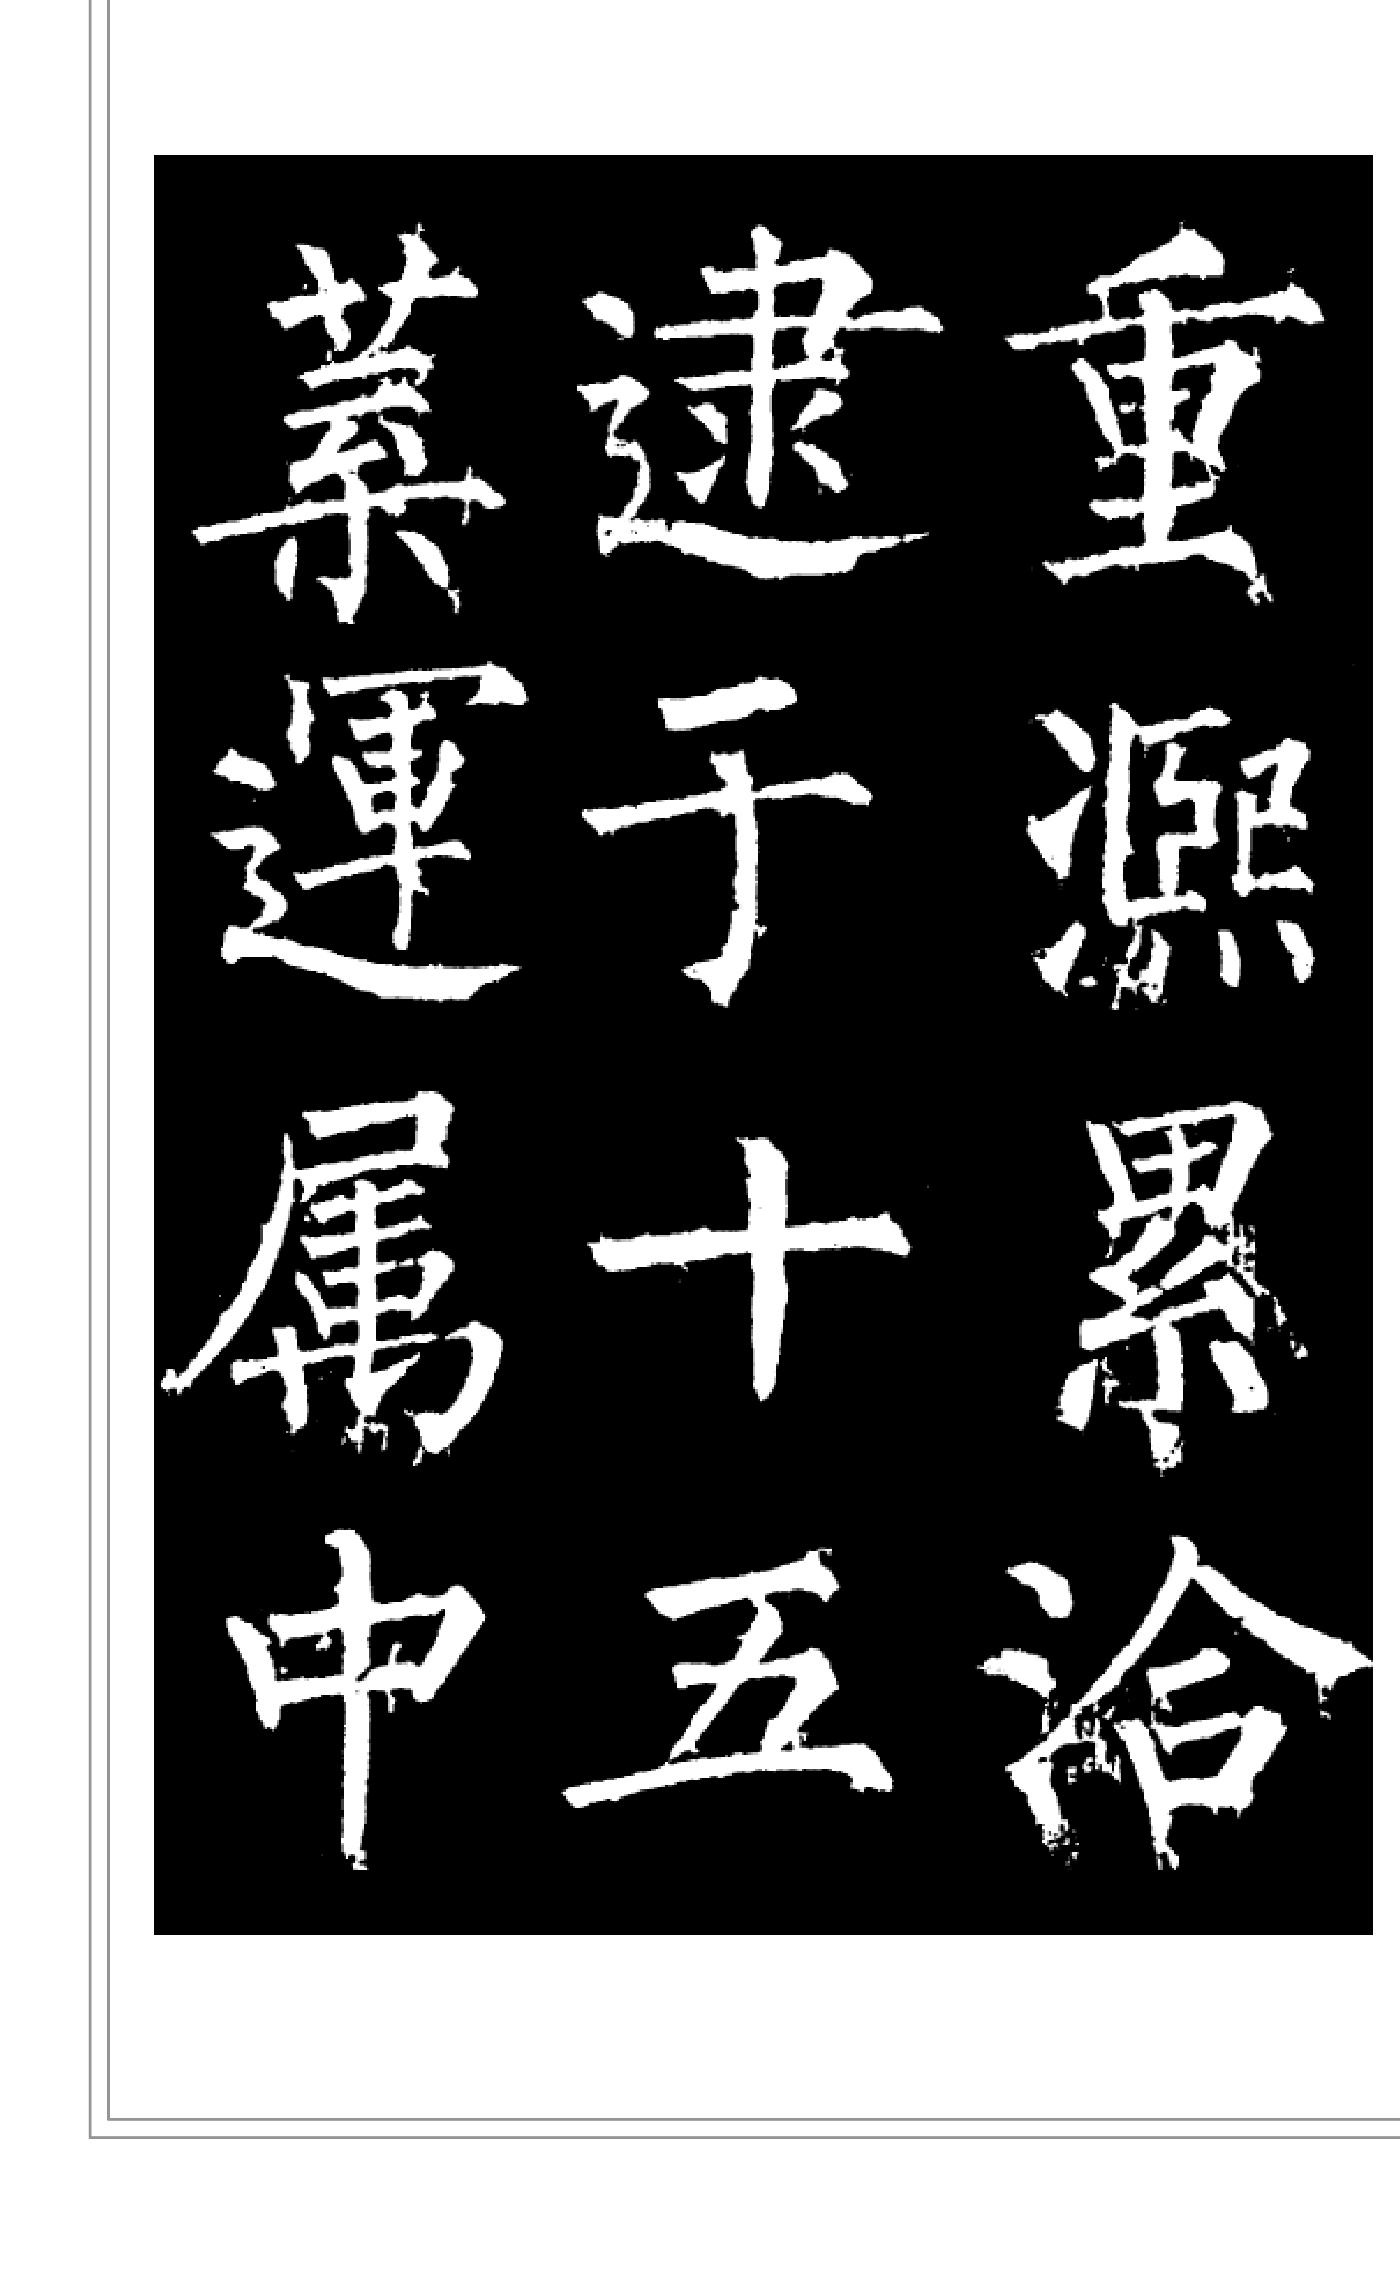 重熙累洽
逮于十五
葉運属中